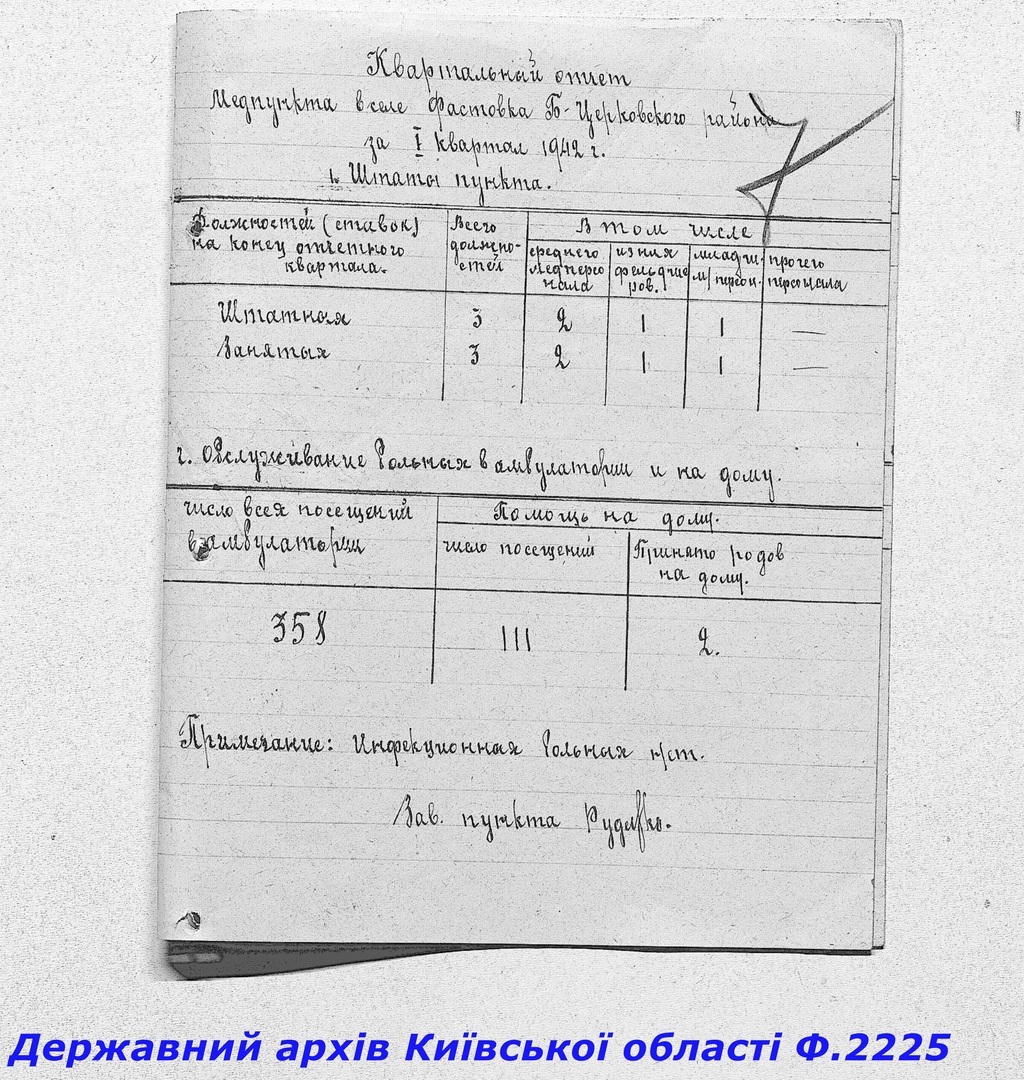 Квартальный отчет
Медпункта в селе Фастовка Б-Церковского района
за I квартал 1942 г.
1. Штаты пункта.
Должностей (ставок) на конец отчетного квартала.
Всего должно-стей
В том числе
среднего медперсо нала
из них фельдше ров.
младш. м/персон.
прочего персонала
Штатных 3 2 1 1 —
Занятых 3 2 1 1 —
2. Обслуживание больных в амбулатории и на дому.
число всех посещений
в амбулатории
Помощь на дому.
число посещений
Принято родов
на дому.
358 111 2.
Примечание: Инфекционных больных н/ст.
Зав. пункта
Державний архів Київської області Ф.2225